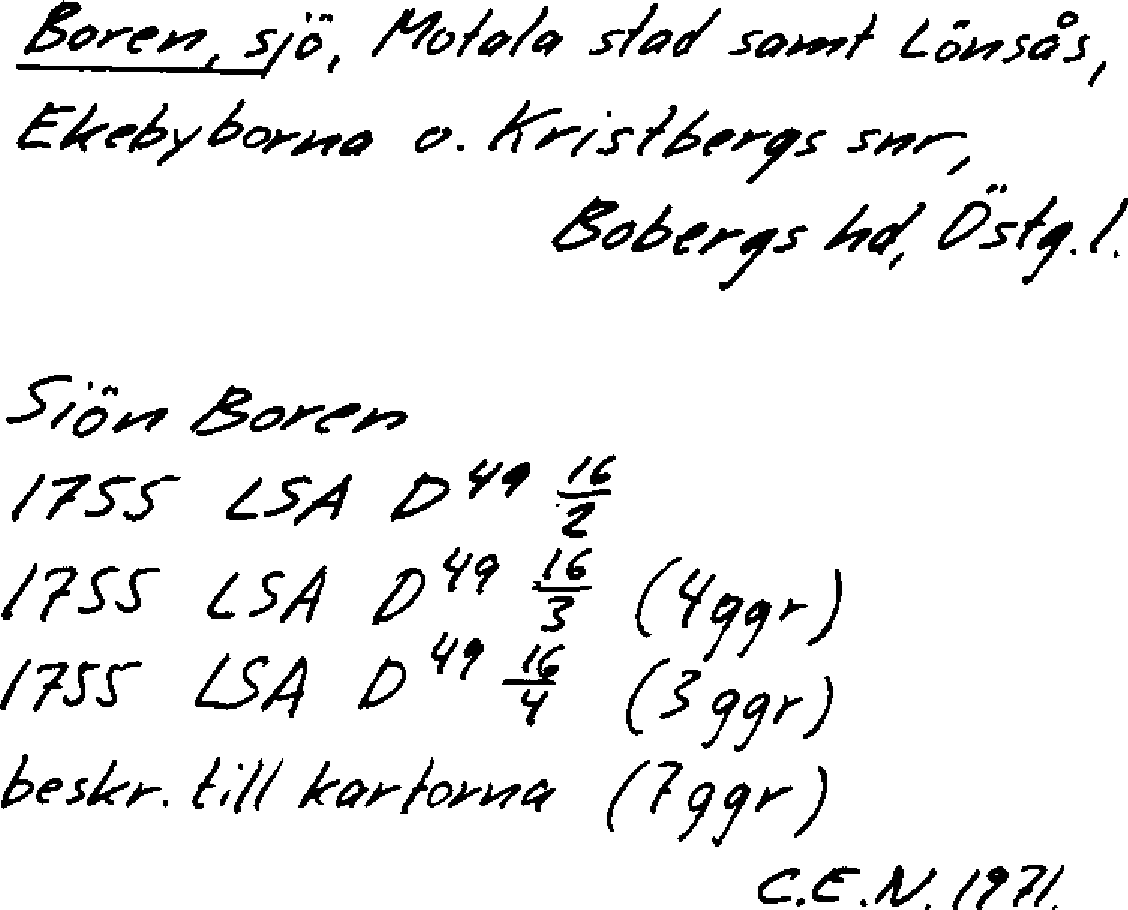 Boren, sjö, Motala stad samt Lönsås,
Ekebyborna o. Kristbergs snr,
Bobergs hd, Östg. l.
Siön Boren
1755 LSA D 49 16/2
1755 LSA D 49 16/3 (4 ggr)
1755 LSA D 49 16/4 (3 ggr)
beskr. till kartorna (7 ggr)
C.E.N. 1971.